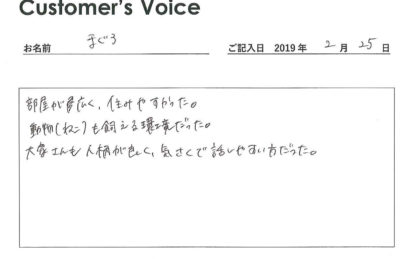 Customer's Voice
お名前 まぐろ ご記入日 2019 年 2 月 25 日
部屋が幅広く、住みやすかった。
動物(ねこ)も飼える環境だった。
大家さんも人柄が良く、気さくで話しやすい方だった。